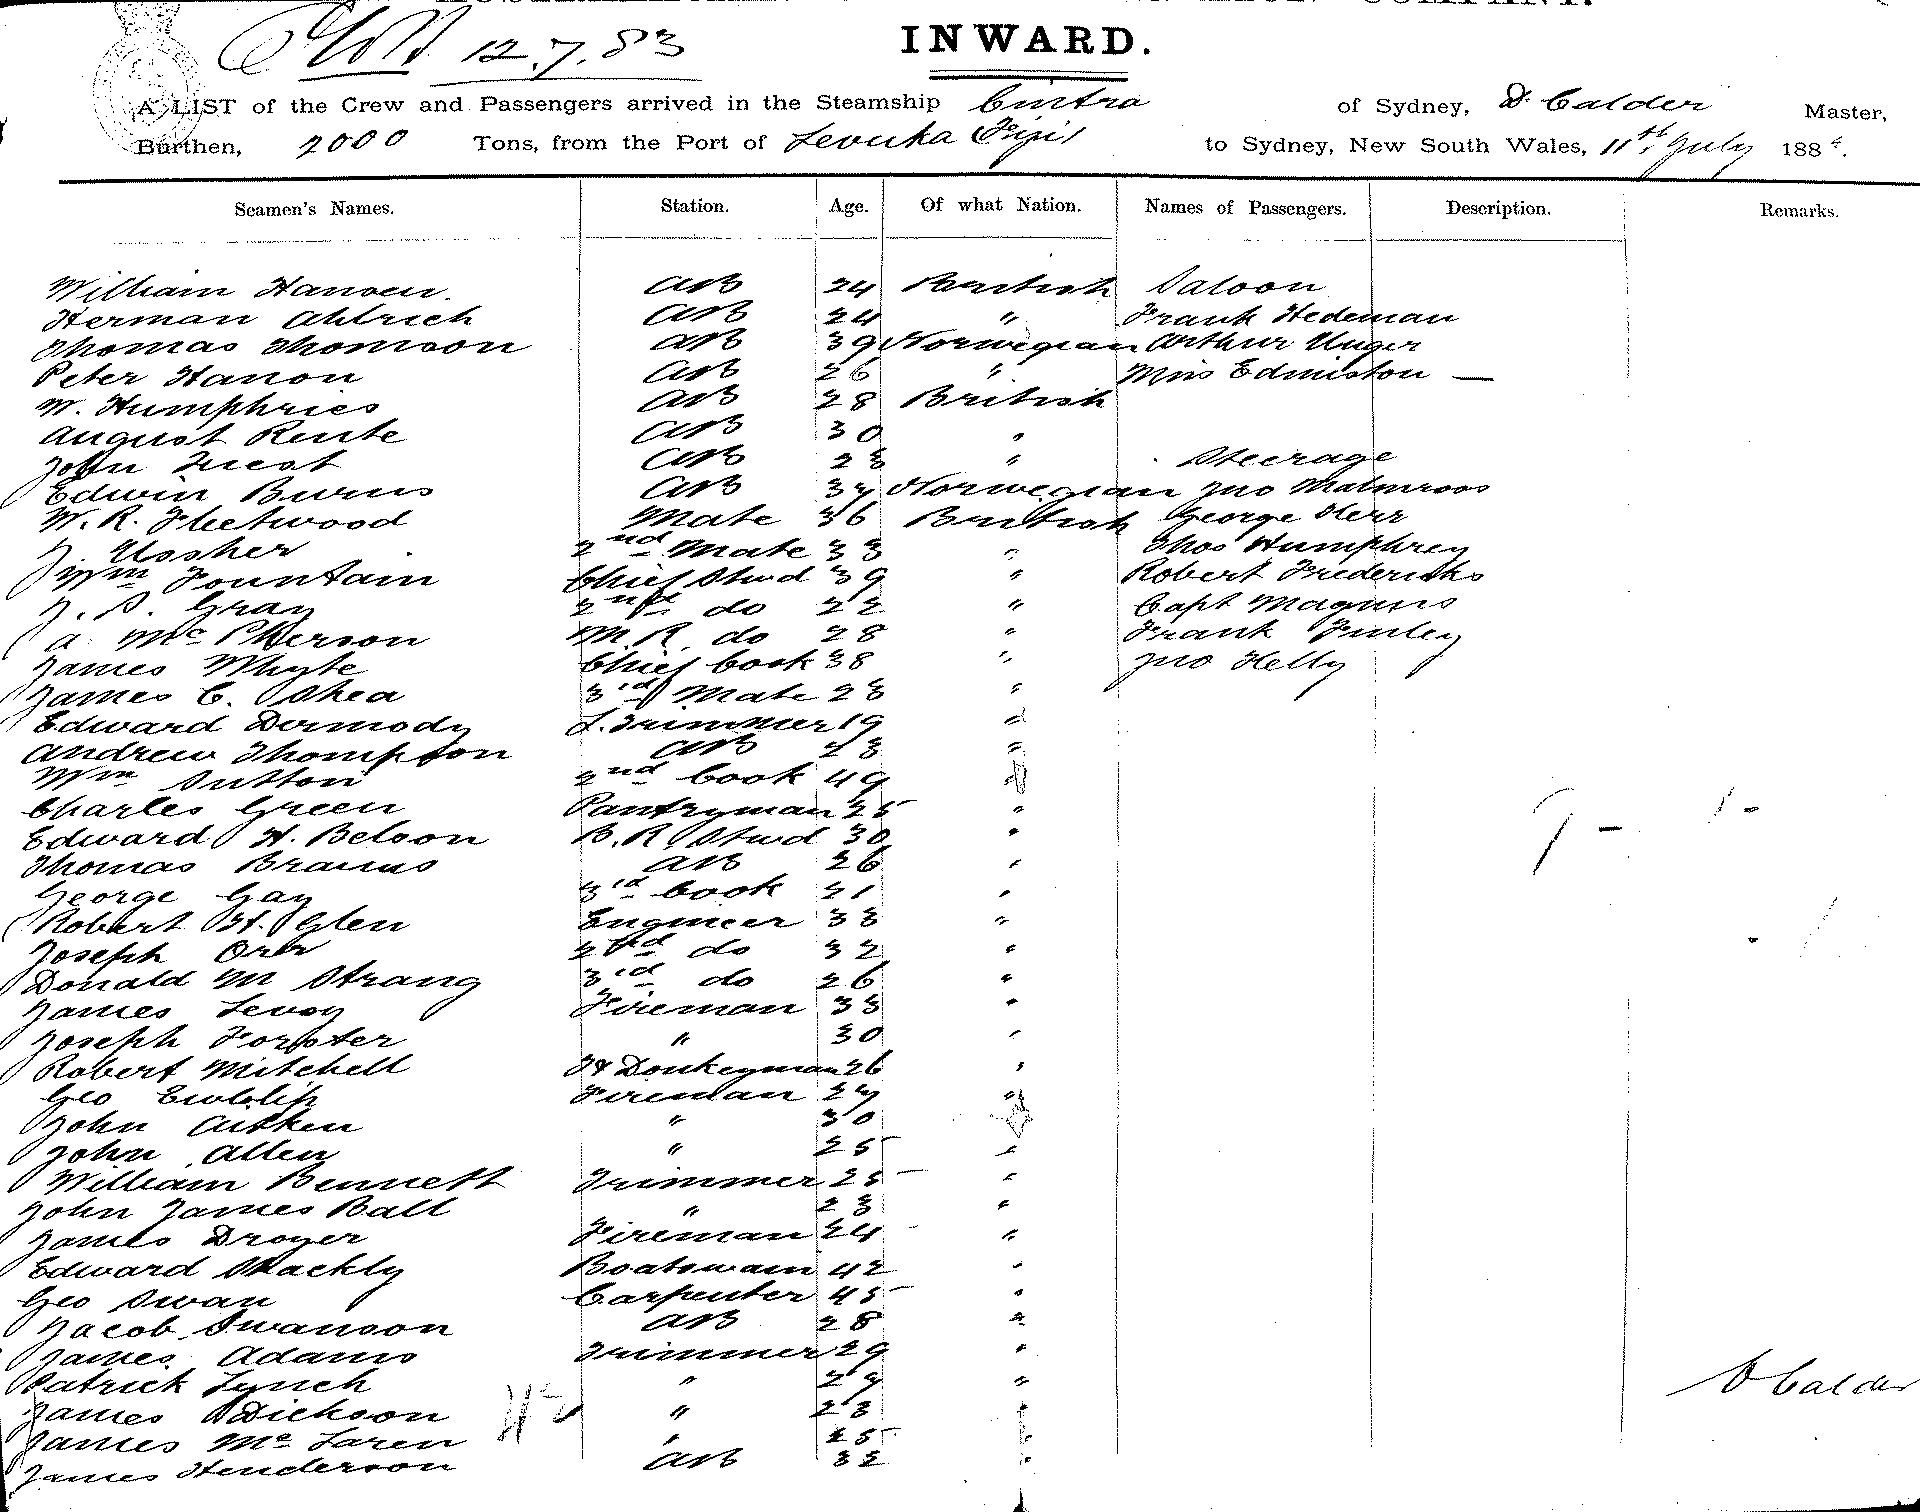 INWARD.
12.7.83
A LIST of the Crew and Passengers arrived in the Steamship Cintra of Sydney, D. Calder Master,
Burthen, 2000 Tons, from the Port of Levuka Fiji to Sydney, New South Wales, 11th July 188
Seamen's Names. Station. Age. Of what Nation. Names of Passengers. Description. Remarks.
William Hansen. AB 24 British Saloon
Herman Ahlrich AB 24 " Frank Hedeman
Thomas Thomson AB 39 Norwegian Arthur Unger
Peter Hanson AB 26 " Miss Edmiston —
W. Humphries AB 28 British
August Rente AB 30 "
John AB 23 " Steerage
Edwin Burns AB Norwegian Jno Malmroos
W. R. Fleetwood Mate 36 British George Kerr
J. Ussher 2nd Mate 33 " Thos Humphrey
Wm Fountain Chief Stwd 39 " Robert Fredericks
J. S. Gray 2nd do 22 " Capt Magnus
A. McPherson M.R. do 28 " Frank Finley
James Whyte Chief Cook 38 " Jno Kelly
James C. Shea 3rd Mate 23 "
Edward Dermody L. Trimmer 19 "
Andrew Thompson AB 23 "
Wm Sutton 2nd Cook 49 "
Charles Green Pantryman 25 "
Edward H. Belson B.R. Stwd 30 "
Thomas AB 26 "
George Gay 3rd Cook 21 "
Robert H. Glen Engineer 33 "
Joseph Orr 2nd do 32 "
Donald M Strang 3rd do 26 "
James Levoy Fireman 33 "
Joseph Forster " 30 "
Robert Mitchell Donkeyman 26 "
Geo Fireman 27 "
John Aitken " 30 "
John Allen " 25 "
William Bennett Trimmer 25 "
John James Ball " 23 "
James Droyer Fireman 24 "
Edward Shackly Boatswain 42 "
Geo Swan Carpenter 45 "
Jacob Swanson AB 28 "
James Adams Trimmer 29 "
Patrick Lynch " 27 "
James Dickson " 23 "
James McLaren " 25 "
James Henderson AB 32 "
D Calder